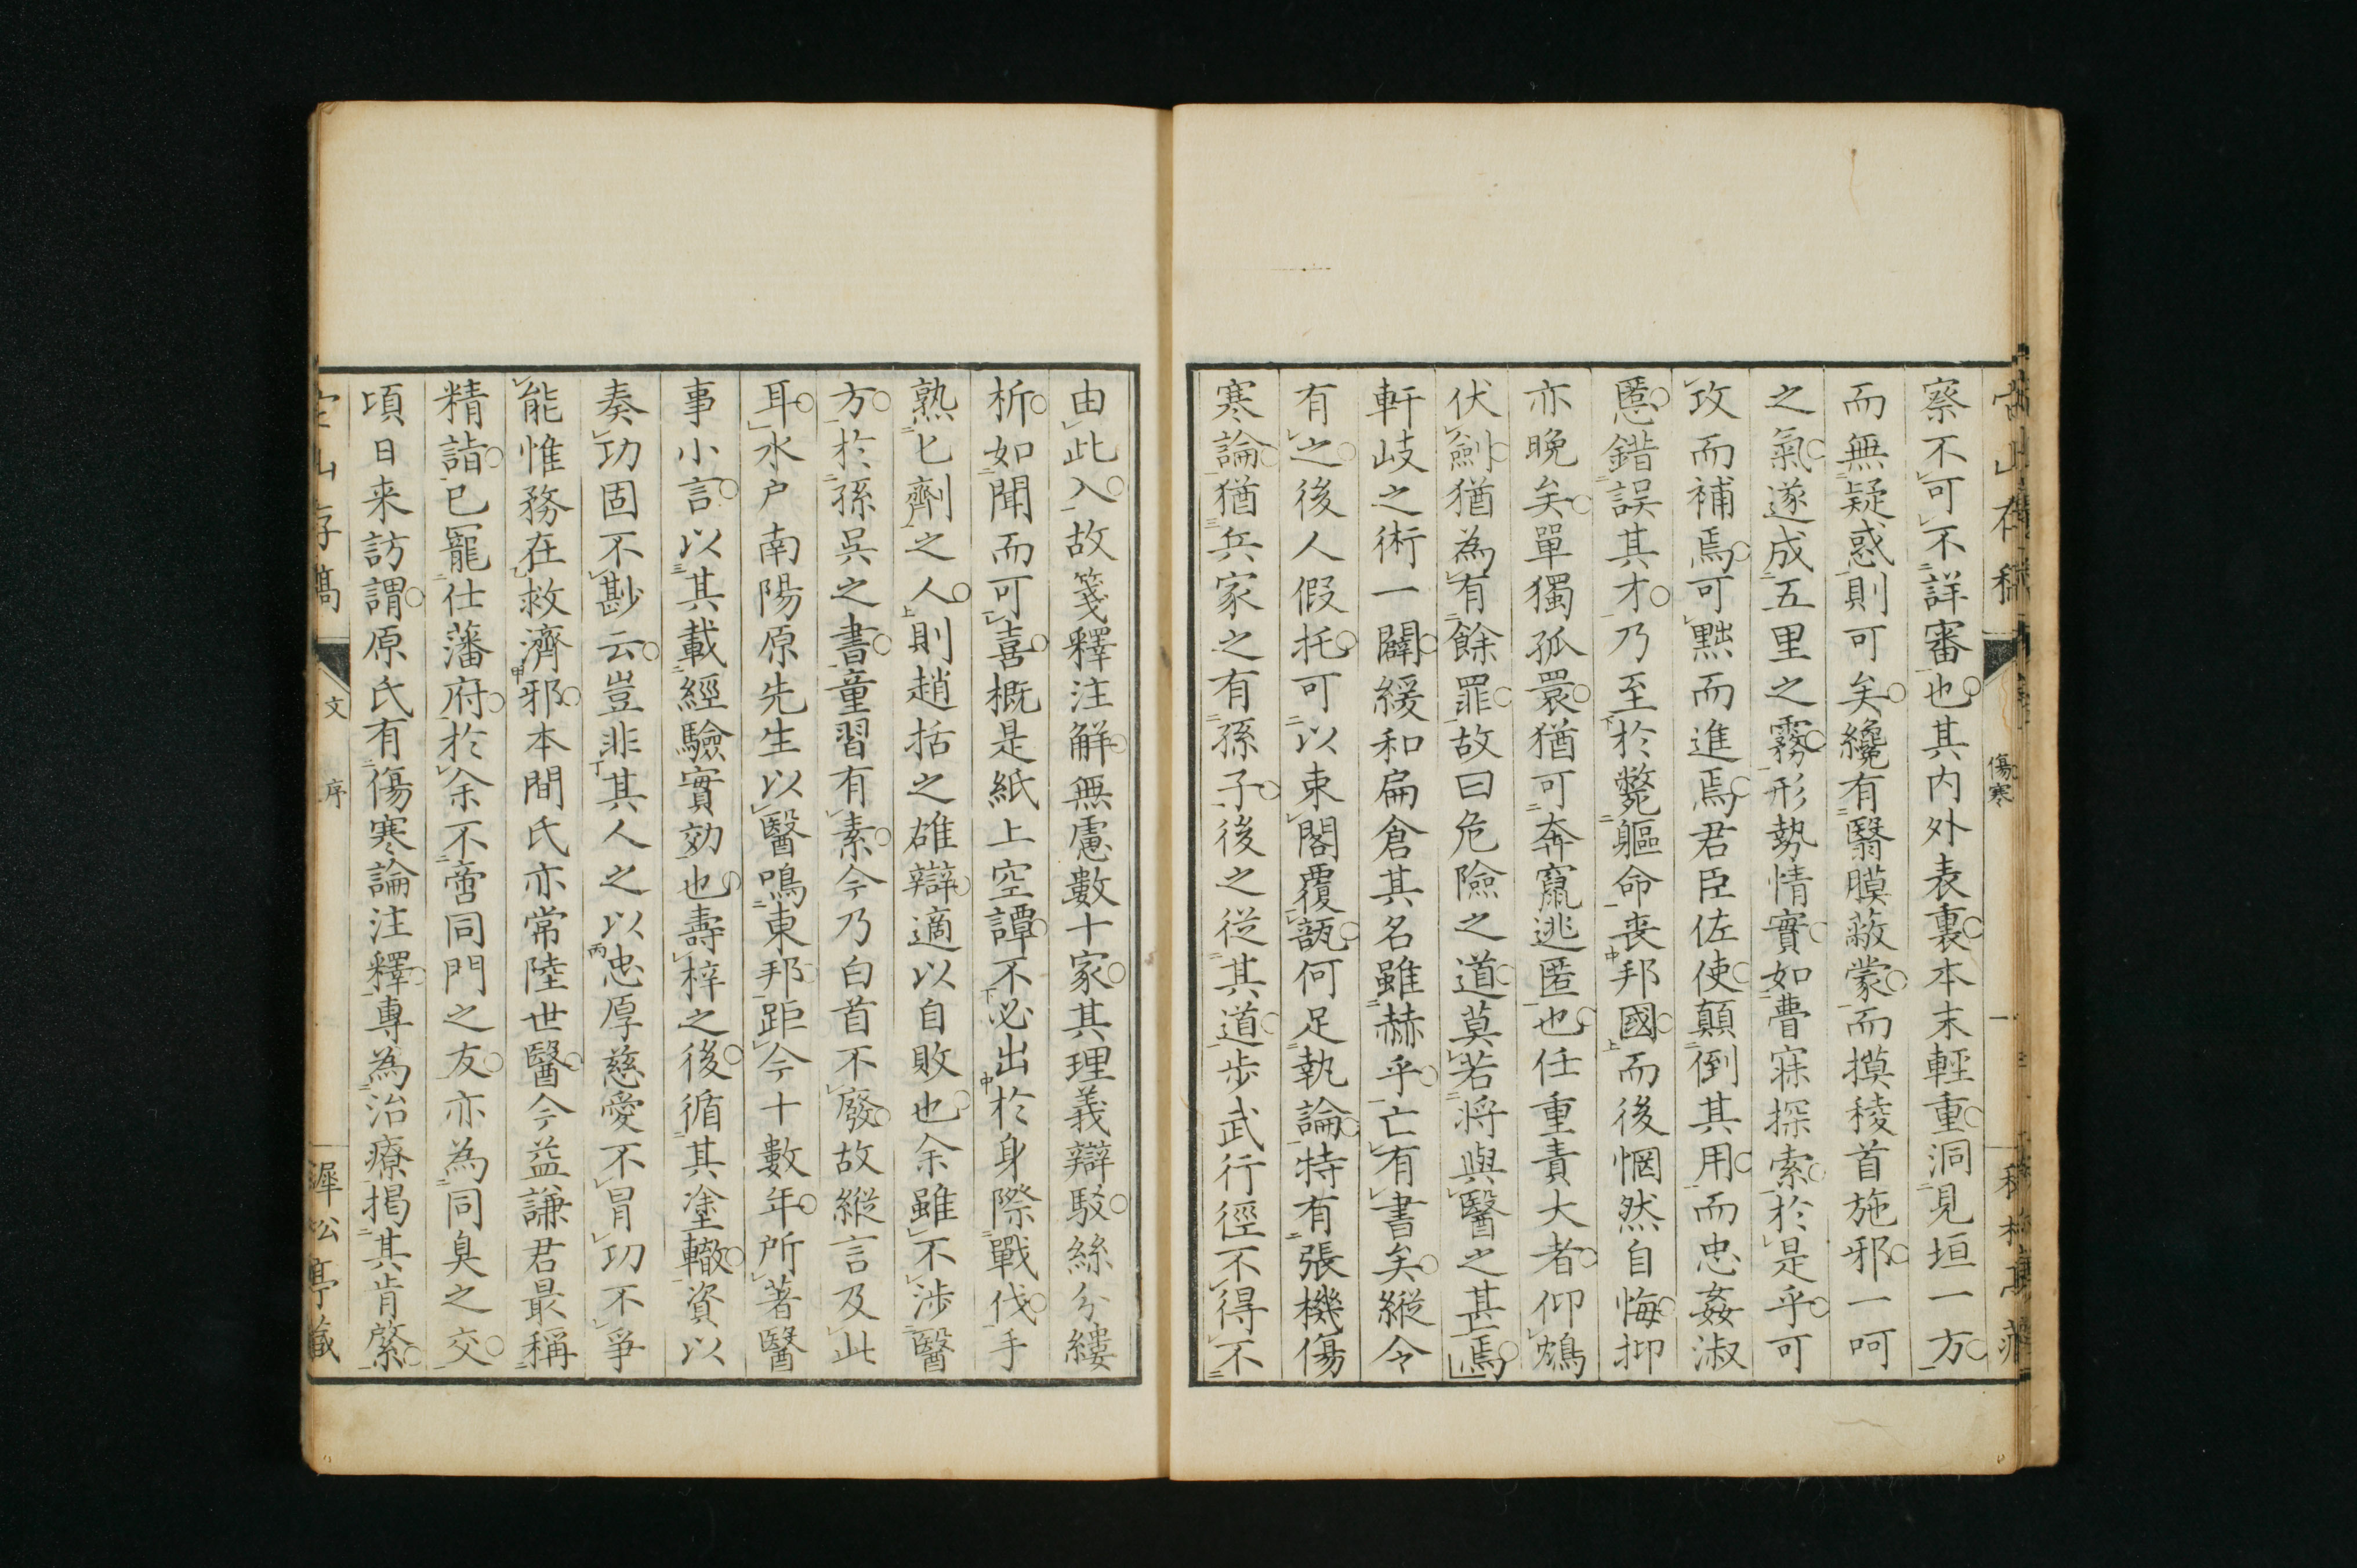 傷寒
察不可不詳審也其内外表裏本末輕重洞見垣一方
而無疑惑則可矣纔有翳膜蔽蒙而摸稜首施邪一呵
之氣遂成五里之霧形勢情實如瞢寐探索於是乎可
攻而補焉可黜而進焉君臣佐使顛倒其用而忠姦淑
慝錯誤其才乃至於斃軀命喪邦國而後惘然自悔抑
亦晚矣單獨孤睘猶可奔竄逃匿也任重責大者仰鴆
伏劍猶為有餘罪故曰危險之道莫若将與醫之甚焉
軒岐之術一闢緩和扁倉其名雖赫乎亡有書矣縱令
有之後人假托可以束閣覆瓿何足執論特有張機傷
寒論猶兵家之有孫子後之從其道步武行徑不得不
由此入故箋釋注解無慮數十家其理義辯駁絲分縷
析如聞而可喜概是紙上空譚不必出於身際戰伐手
熟匕劑之人則趙括之雄辯適以自敗也余雖不涉醫
方於孫吳之書童習有素今乃白首不廢故縱言及此
耳水户南陽原先生以醫鳴東邦距今十數年所著醫
事小言以其載經驗實効也壽梓之後循其塗轍資以
奏功固不尠云豈非其人之以忠厚慈愛不冒功不爭
能惟務在救濟邪本間氏亦常陸世醫今益謙君最稱
精詣已寵仕藩府於余不啻同門之友亦為同臭之交
頃日来訪謂原氏有傷寒論注釋專為治療掲其肯綮
山存稿 文 序 遲松亭藏